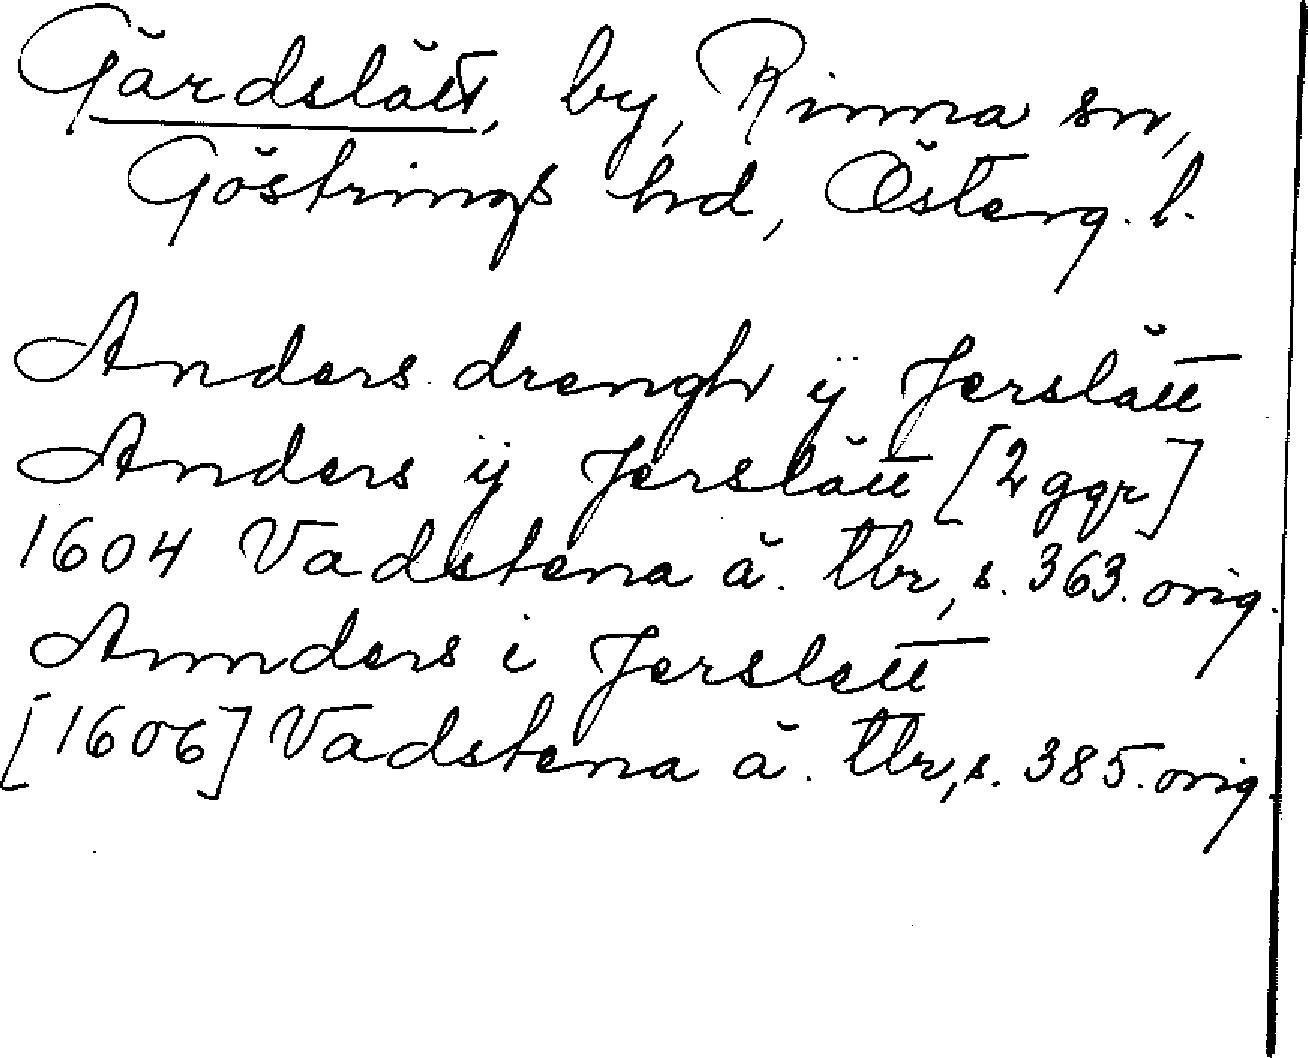 Gärdslätt, by, Rinna sn,
Göstrings hd, Österg. l.
Anders drengh ÿ Jerslätt
Anders ÿ Jerslätt [2 ggr]
1604 Vadstena ä. tbr, s. 363. orig.
Annders i Jerslett
[1606] Vadstena ä. tbr, s. 385. orig.